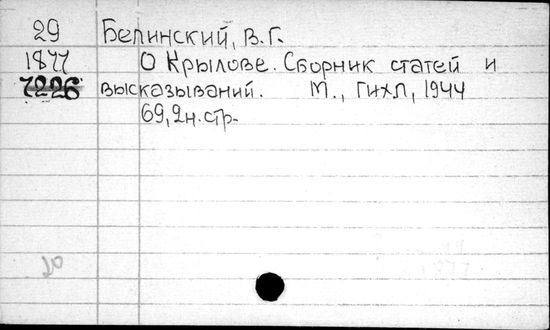 29 Белинский, В.Г.
1877 О Крылове. Сборник статей и
7226 высказываний. М., Гихл, 1944
69,2н.стр.
20